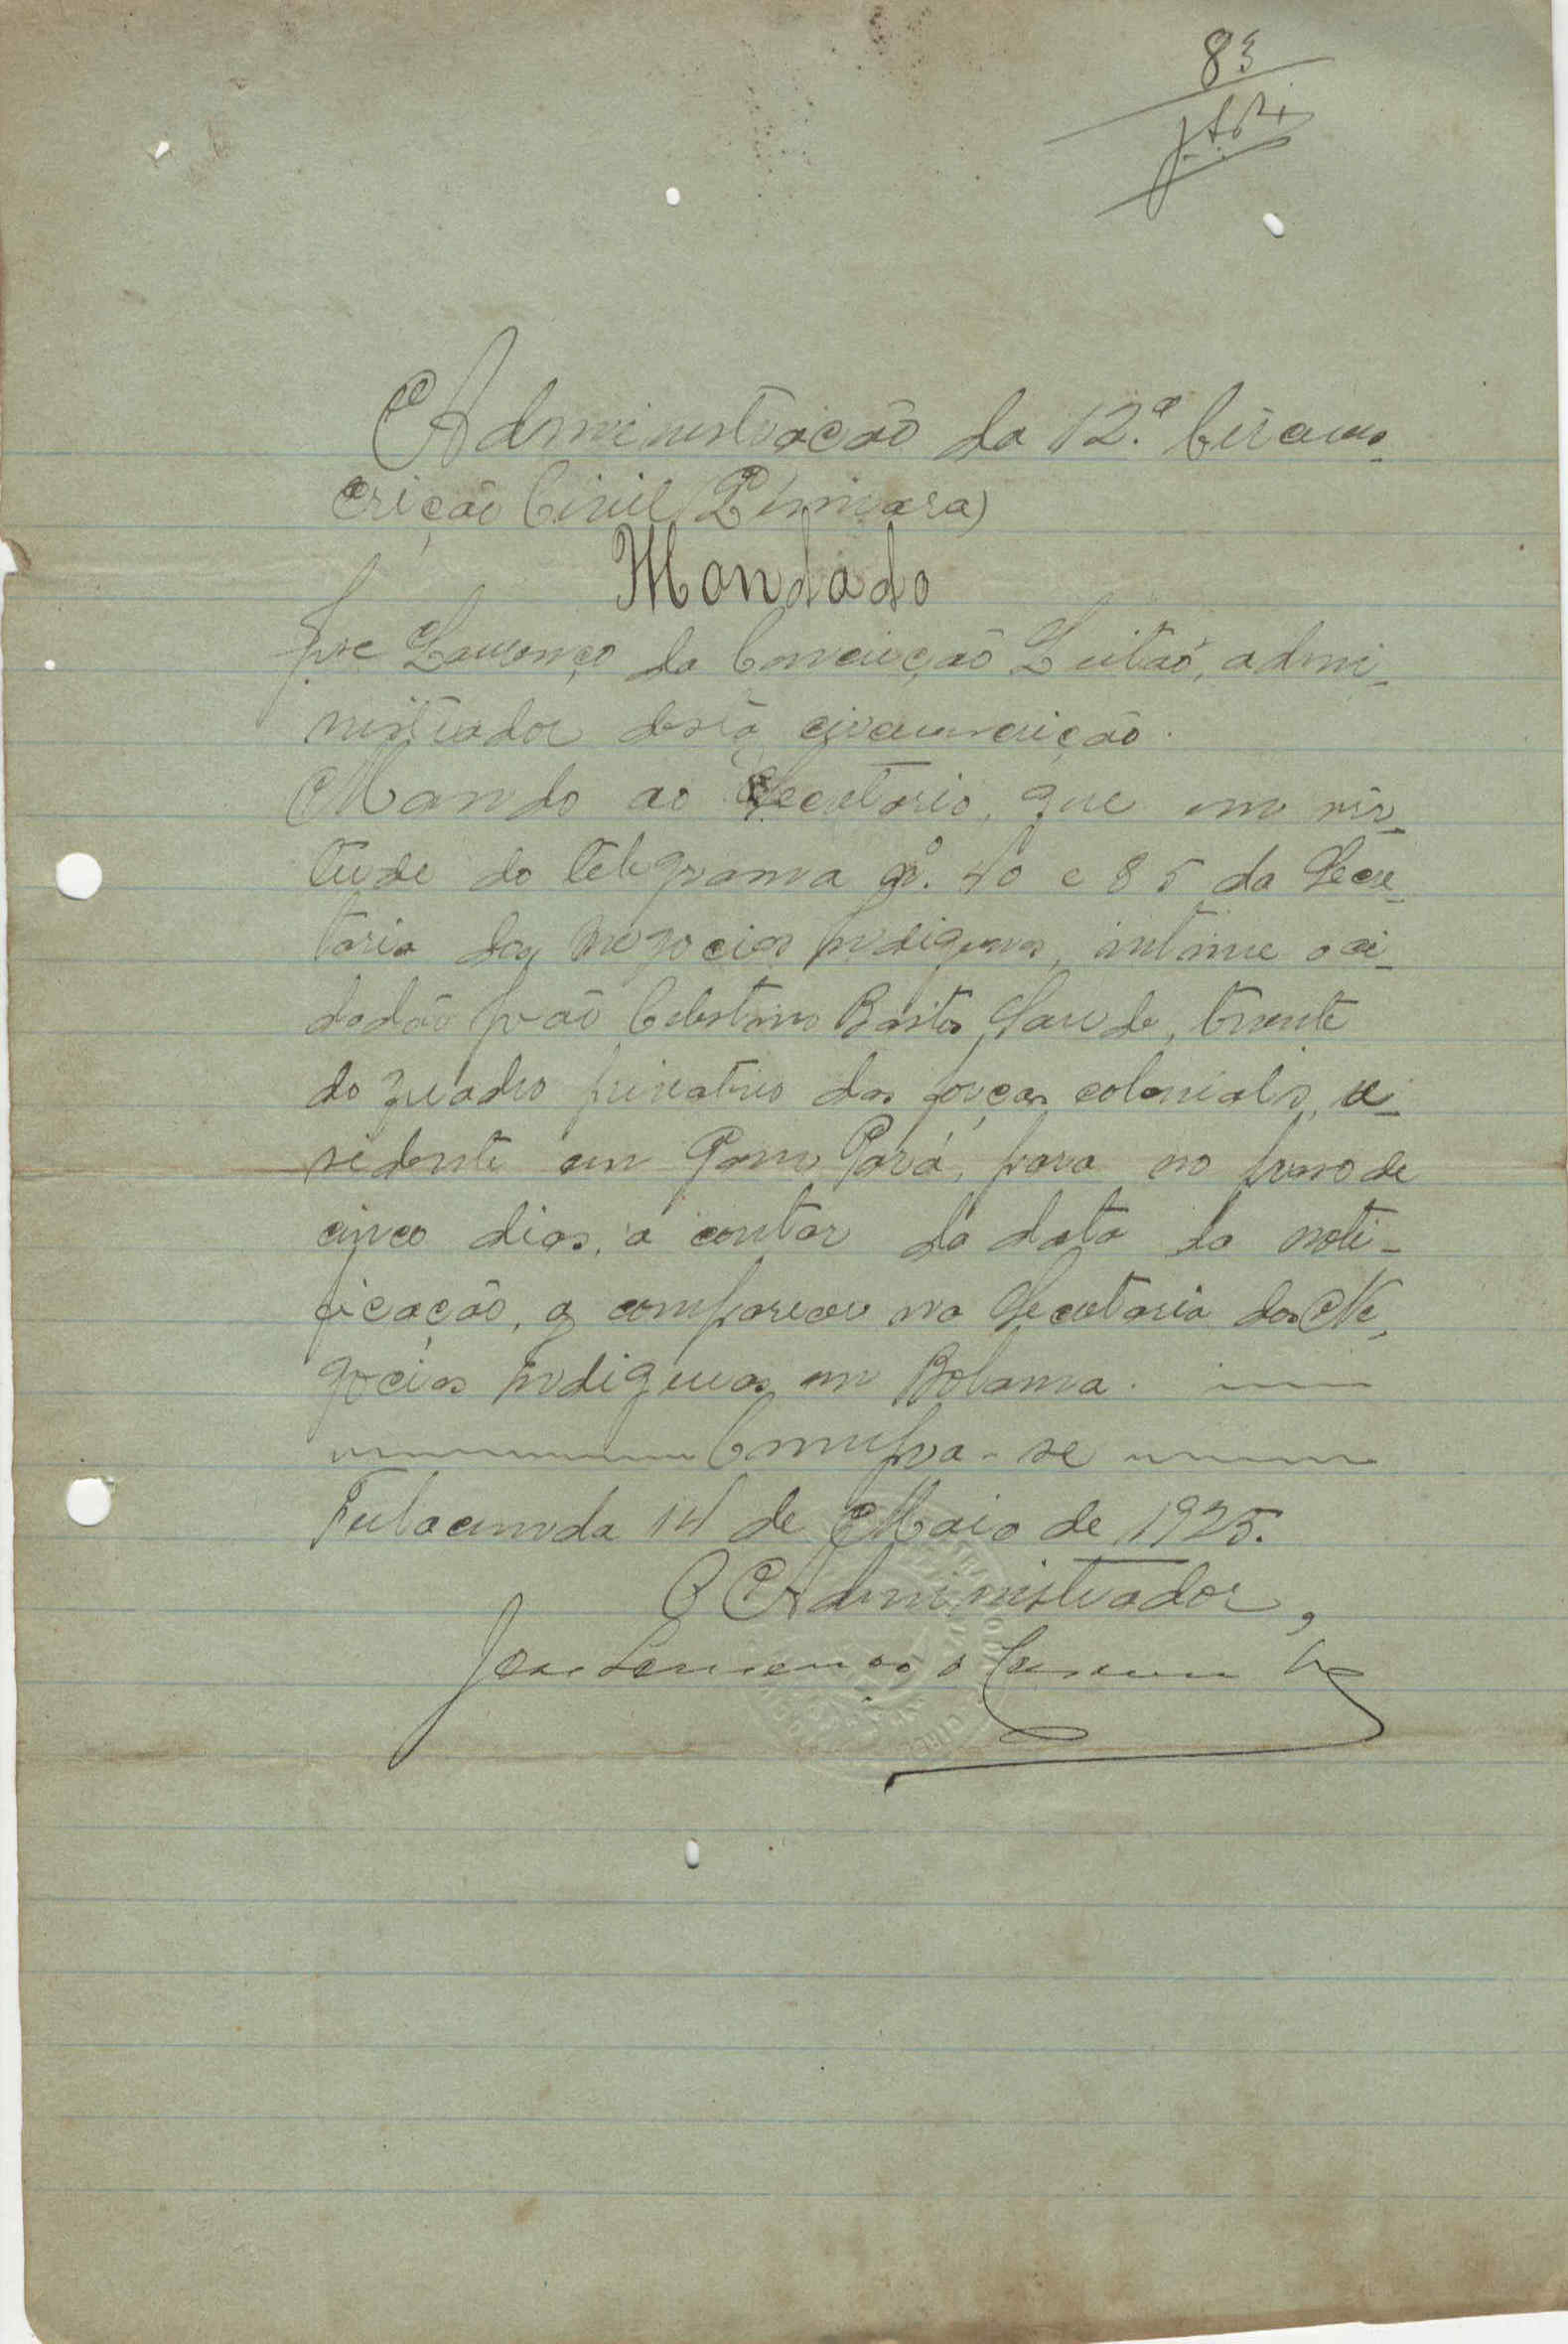 83
Administração da 12.ª Circuns-
crição Civil (Quinara)
Mandado
José Lourenço da Conceição Leitão, admi-
nistrador desta circunscrição.
Mando ao Secretario, que em vir-
tude do telegrama nº. 40 e 85 da Secre-
taria dos Negocios Indigenas, intime o ci-
dadão João Celestino Bastos Saude, tenente
do quadro privativo das forças coloniais, re-
sidente em Gam Pará, para no praso de
cinco dias, a contar da data da noti-
ficação, a comparecer na Secretaria dos Ne-
gocios Indigenas em Bolama.
Cumpra-se
Fulacunda 14 de Maio de 1925.
O Administrador,
José Lourenço da Conceição